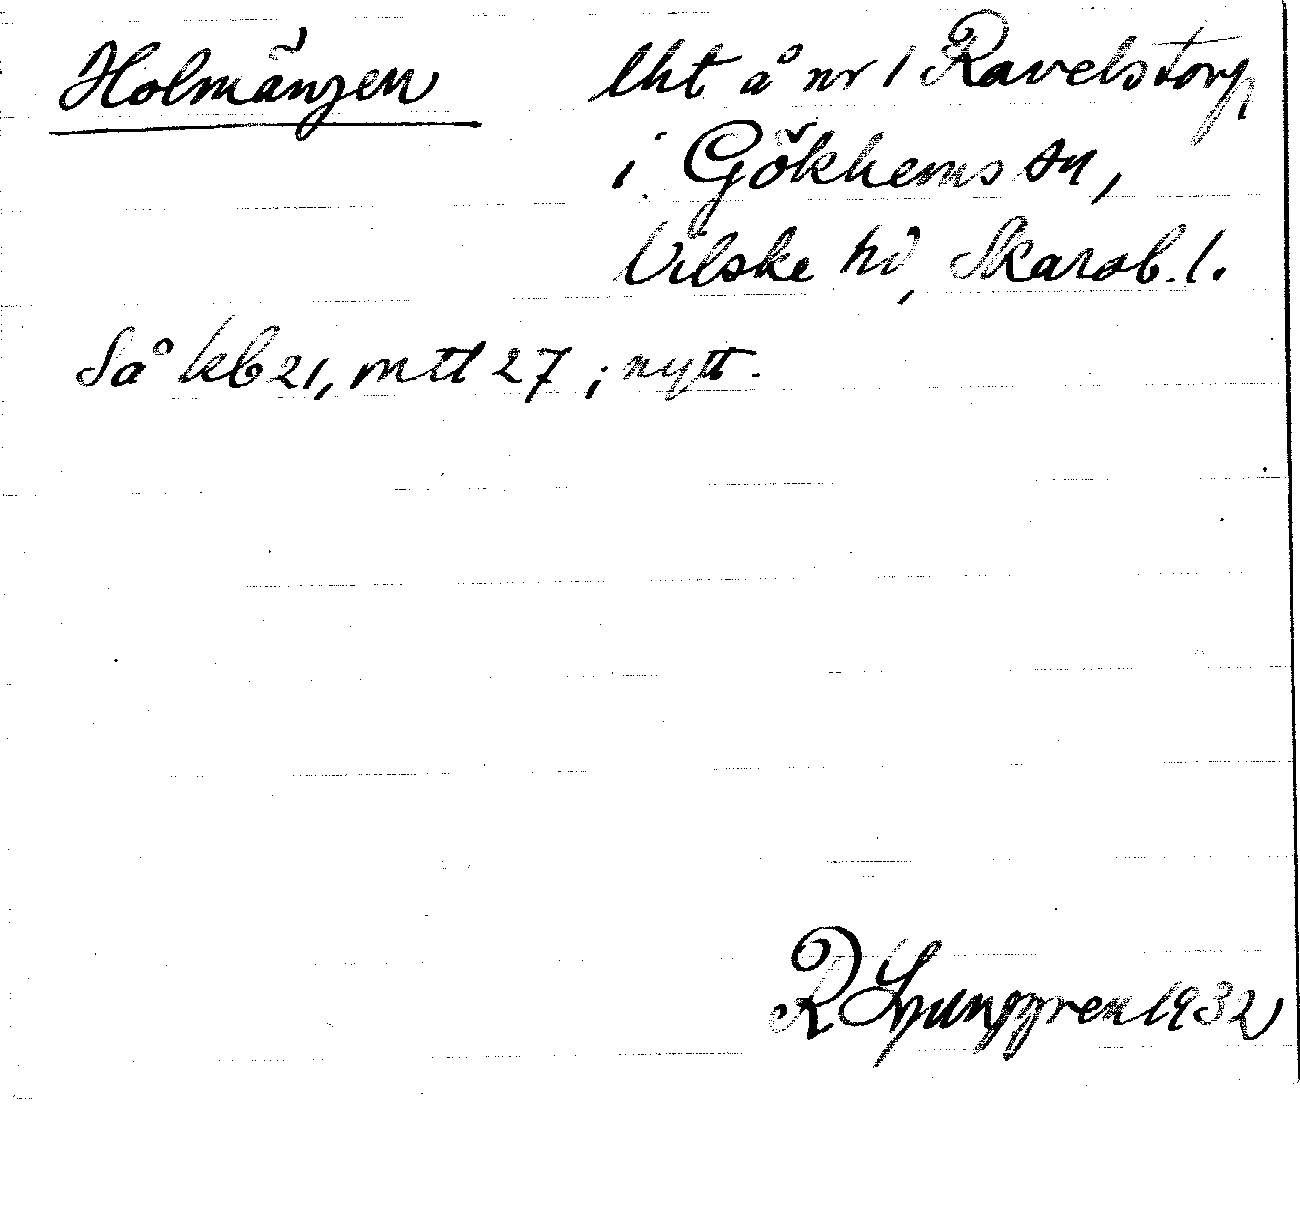 Holmängen lht å nr 1 Ravelstorp
i Gökhems sn,
Vilske hd, Skarab. l.
Så kb 21, mtl 27; nytt.
R Ljunggren 1932